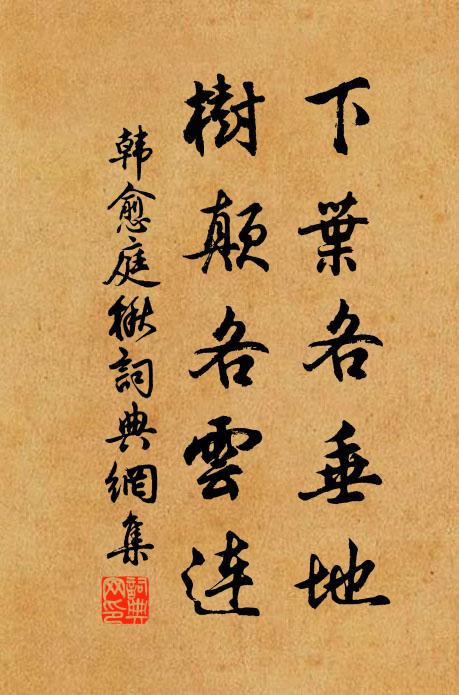 下葉各垂地
樹顛各雲連
韩愈庭楸詞典網集
詞典网印